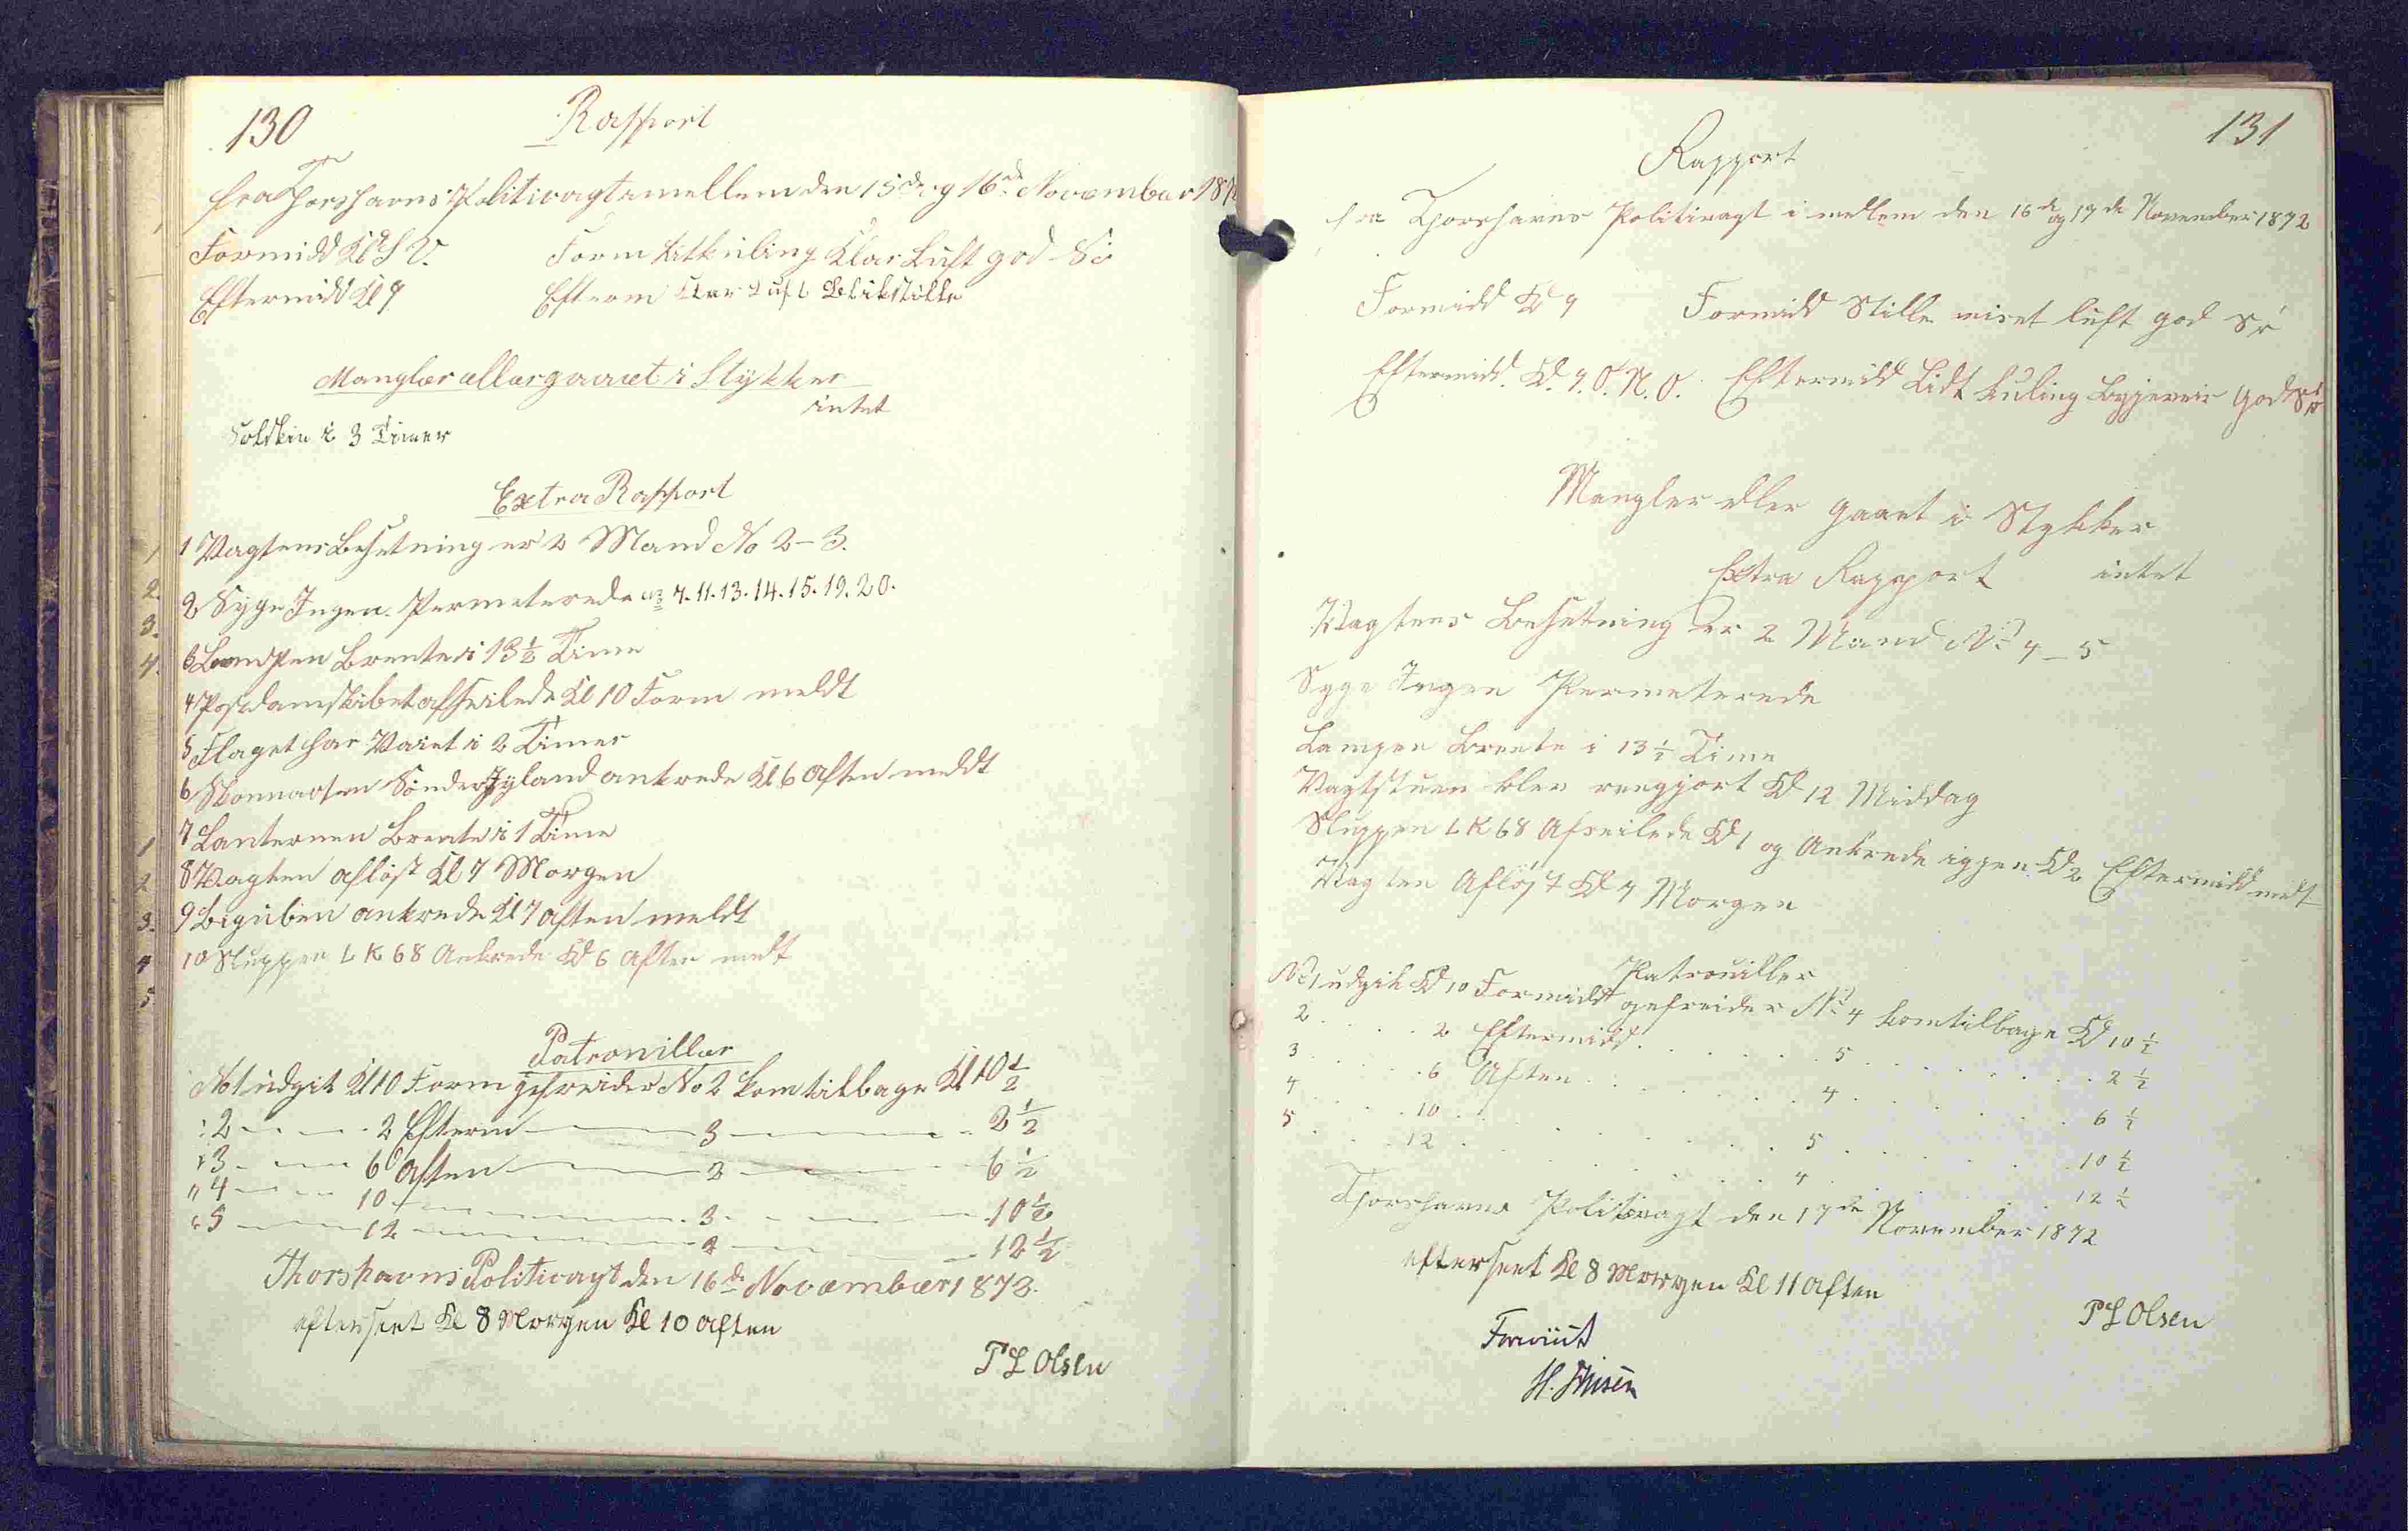 130
Rapport
fra Thorshavns Politivagt imellem den 15de og 16de November 187
Formidd Kl 9 S V. Form Litkuling Klar Luft god Sö
Eftermidd Kl 9 Efterm Klar Luft Blikstille
Mangler eller gaaet i Stykker
intet
Solskin i 3 Timer
Extra Rapport
1 Vagtens Besetning er 2 Mand No 2-3.
2 Syge Ingen. Permeterede No 7. 11. 13. 14. 15. 19. 20.
3 Lampen Brente i 13 1/2 Time
4 Postdamskibet afseilede Kl 10 Form meldt
5 Flaget har Vaiet i 2 Timer
6 Skonnarten SönderJyland ankrede Kl 6 Aften meldt
7 Lanternen Brente i 1 Time
8 Vagten aflöst Kl 7 Morgen
9 ankrede Kl 7 aften meldt
10 Sluppen L K 68 Ankrede Kl 6 Aften meldt
Patrouiller
No 1 udgik Kl 10 Form gefreider No 2 kom tilbage Kl 10 1/2
" 2 2 Efterm 3 2 1/2
" 3 6 Aften 2 6 1/2
" 4 10 3 10 1/2
" 5 12 2 12 1/2
Thorshavns Politivagt den 16de November 1872.
efterseet Kl 8 Morgen Kl 10 aften
P L Olsen
131
Rapport
fra Thorshavns Politivagt i mellem den 16de og 17de November 1872
Formidd Kl 9 Formidd Stille luft god Sö
Eftermidd. Kl. 9. O. N. O. Eftermidd Lidt kuling Bygeveir god Sö
Mangler eller gaaet i Stykker
Extra Rapport intet
Vagtens Besetning er 2 Mand No 4-5
Syge Ingen Permeterede
Lampen Brente i 13 1/2 Time
Vagtstuen blev rengjort Kl 12 Middag
Sluppen L K 68 Afseilede Kl 1 og Ankrede iggen Kl 2 Eftermidd meldt
Vagten Aflöst Kl 7 Morgen
Patrouiller
No 1 udgik Kl 10 Formidd gefreider No 4 kom tilbage Kl 10 1/2
2 2 Eftermidd. 5 2 1/2
3 6 Aften 4 6 1/2
4 10 5 10 1/2
5 12 4 12 1/2
Thorshavns Politivagt den 17de November 1872
efterseet Kl 8 Morgen Kl 11 aften
P L Olsen